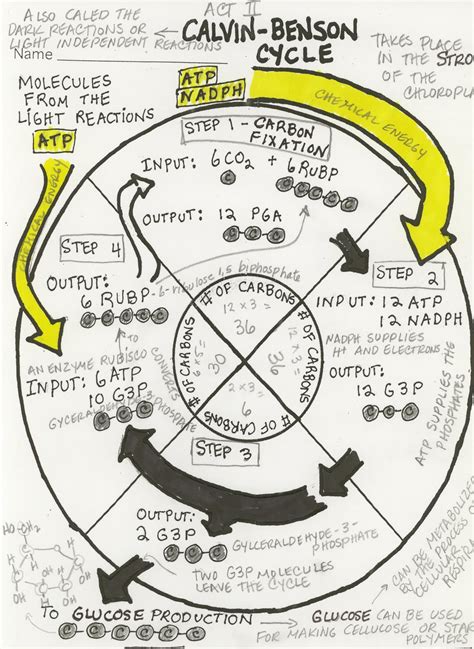 ALSO CALLED THE
DARK REACTIONS OR
LIGHT INDEPENDENT REACTIONS
ACT II
CALVIN-BENSON
CYCLE
TAKES PLACE
IN THE STRO
OF THE
CHLOROPLA
Name
MOLECULES
FROM THE
LIGHT REACTIONS
ATP
CHEMICAL ENERGY
ATP
NADPH
CHEMICAL ENERGY
STEP 1 - CARBON
FIXATION
INPUT: 6CO2 + 6RUBP
C
C C C C C
OUTPUT: 12 PGA
C C C
STEP 2
INPUT: 12 ATP
12 NADPH
NADPH SUPPLIES
H+ AND ELECTRONS
OUTPUT:
12 G3P
C C C
ATP SUPPLIES THE
STEP 3
OUTPUT:
2 G3P
C C C
GYLCERALDEHYDE-3-
PHOSPHATE
TWO G3P MOLECULES
LEAVE THE CYCLE
STEP 4
OUTPUT:
6 RUBP-6-ribulose 1,5 biphosphate
C C C C C
TO
AN ENZYME RUBISCO
CONVERTS
INPUT: 6ATP
10 G3P
C C C
GYCERALDEHYDE-3-
PHOSPHATE
# OF CARBONS
12 x 3 =
36
# OF CARBONS
12 x 3 =
36
# OF CARBONS
2 x 3 =
6
# OF CARBONS
6 x 5 =
30
TO GLUCOSE PRODUCTION
C C C C C C
GLUCOSE CAN BE USED
FOR MAKING CELLUCOSE OR STAR
POLYMERS
CAN BE METABOLIZED
BY THE PROCESS O
CELLULAR
RESPIRA